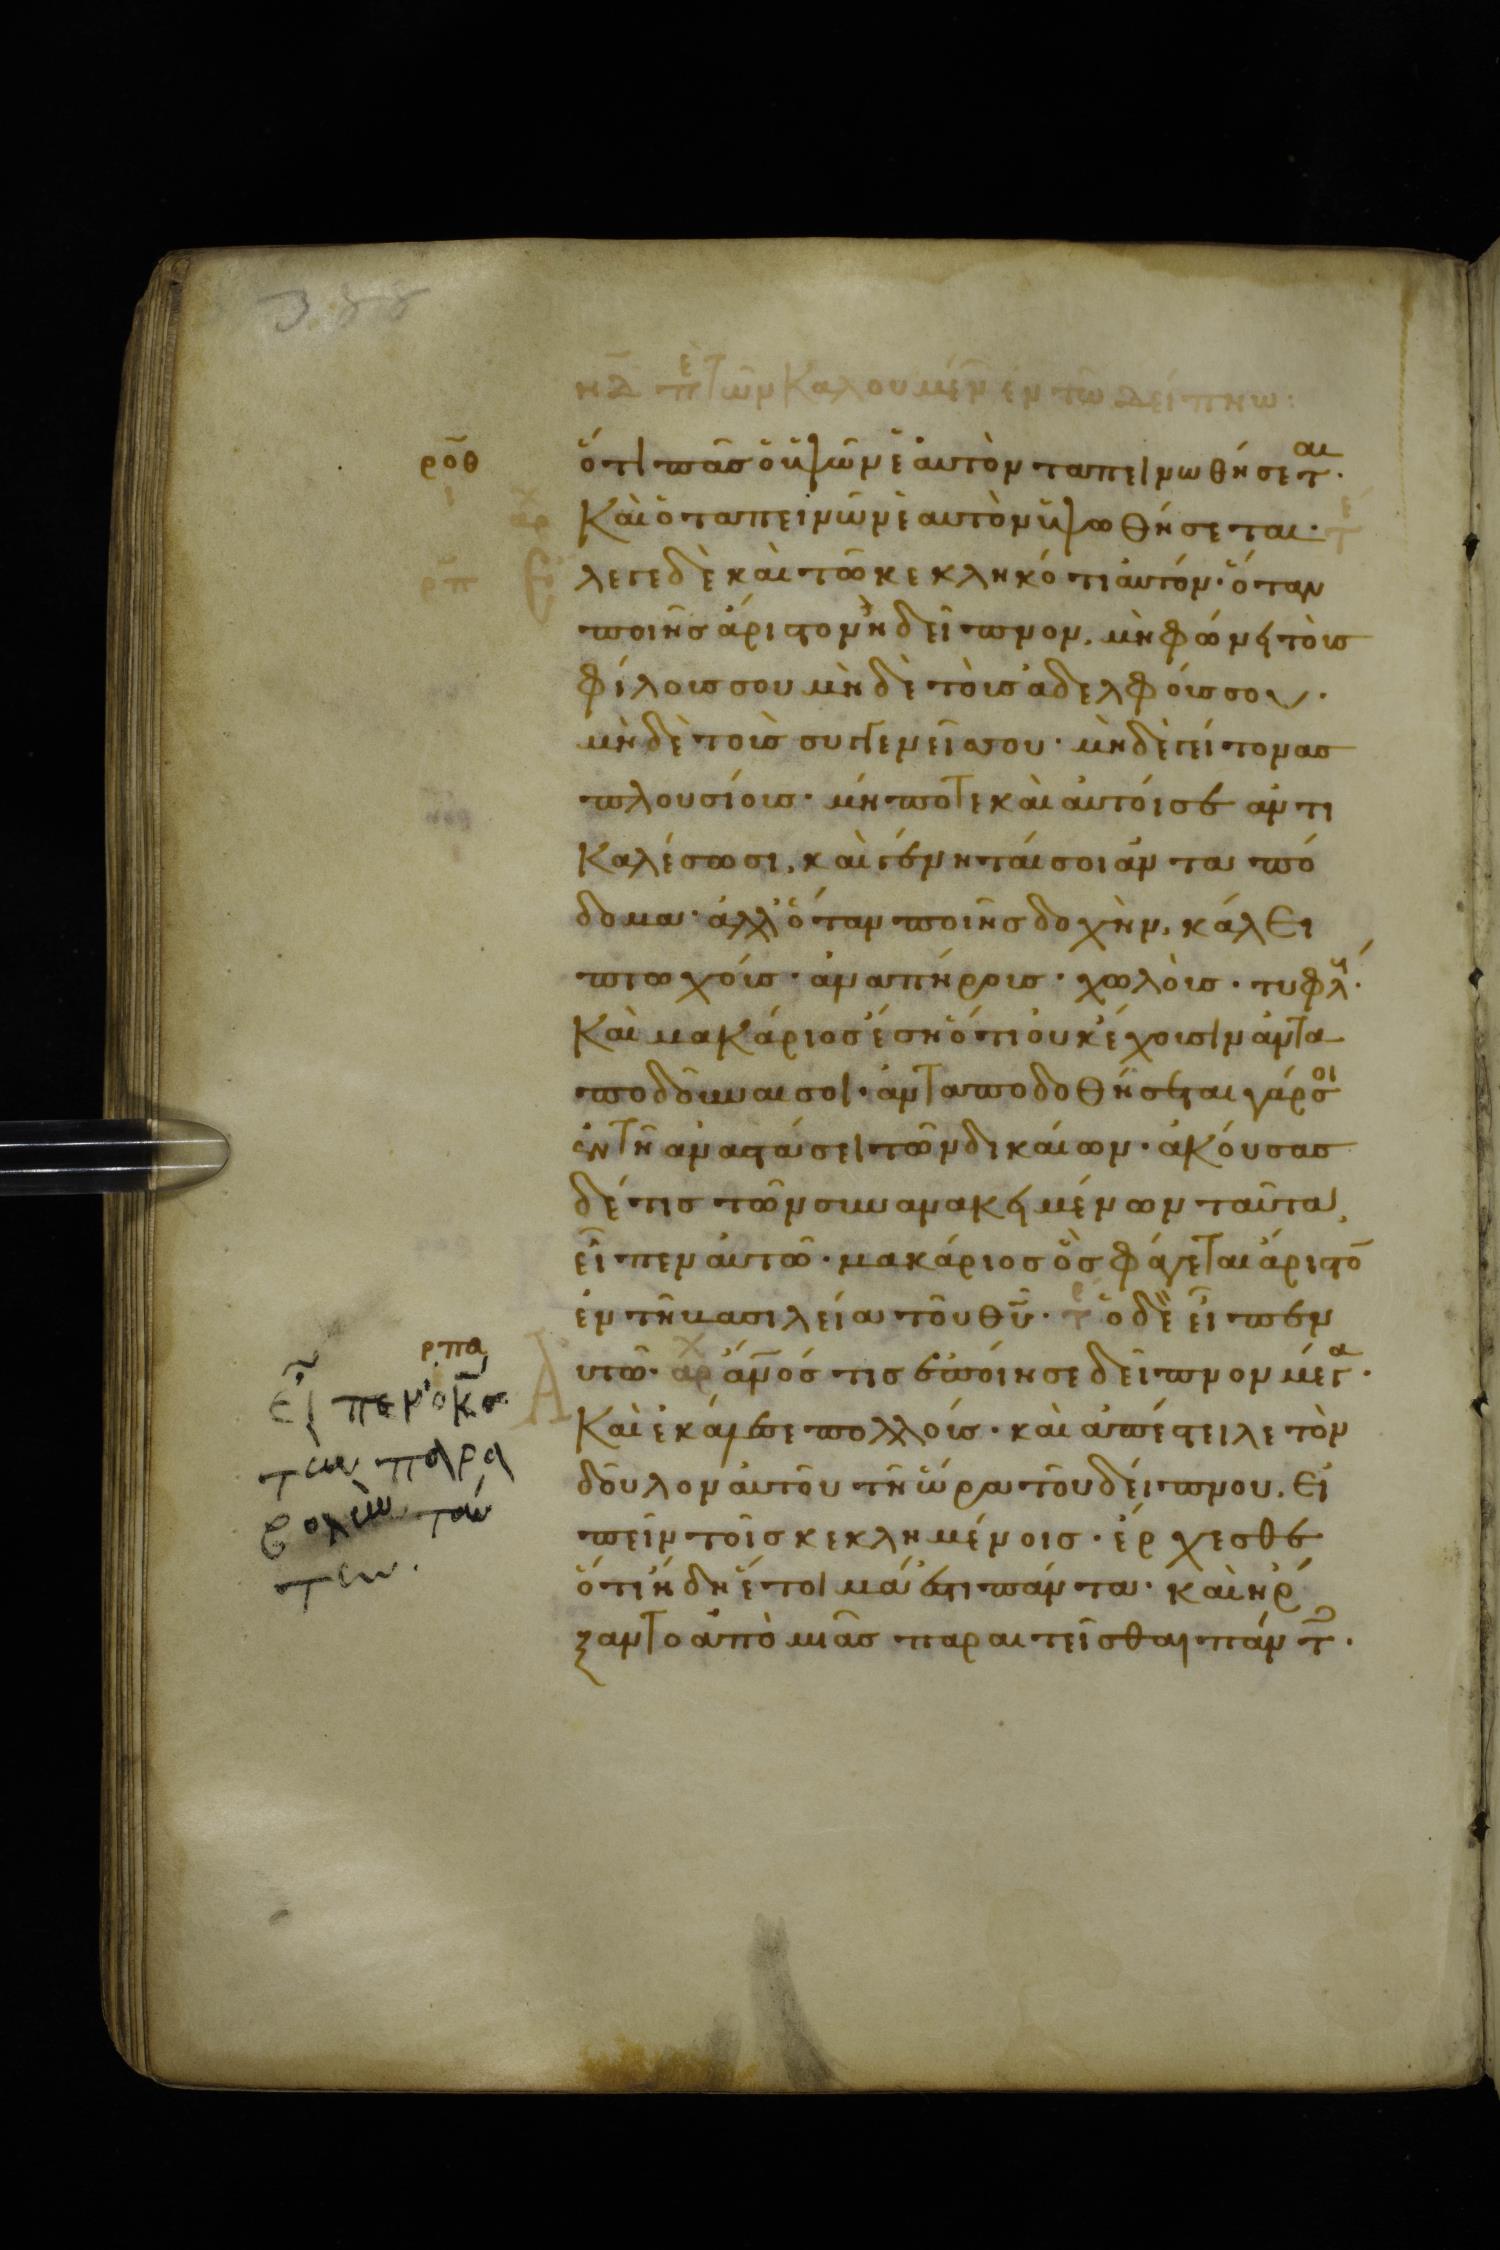 388
νδ πε τῶν καλουμέν ἐν τῶ δείπνω:
ροθ
ὅτι πᾶσ ὁ ὑψῶν ἑαυτὸν ταπεινωθήσεται·
καὶ ὁ ταπεινῶν ἑαυτὸν ὑψωθήσεται· τέ
αρχ
ρπ
ἔλεγε δὲ καὶ τῶ κεκληκότι αὐτόν· ὅταν
ποιῆσ ἄριστον ἢ δεῖπνον, μὴ φώνει τοὺσ
φίλουσ σου μὴδὲ τοὺσ ἀδελφούσ σου·
μὴδὲ τοὺσ συγγενεῖσ σου· μὴδὲ γείτονασ
πλουσίουσ· μήποτε καὶ αὐτοί σε ἀντι
καλέσωσι, καὶ γένηταί σοι ἀνταπό
δομα· ἀλλ' ὅταν ποιῆσ δοχὴν, κάλει
πτωχούσ· ἀναπήρουσ· χωλοὺσ· τυφλούσ·
καὶ μακάριοσ ἔση ὅτι οὐκ ἔχουσιν ἀντα
ποδοῦναι σοι· ἀνταποδοθήσεται γάρ σοι
ἐν τῆ ἀναστάσει τῶν δικαίων· ἀκούσασ
δέ τισ τῶν συνανακειμένων ταῦτα,
εἶπεν αὐτῶ· μακάριοσ ὃσ φάγεται ἄριστο̄
ἐν τῆ βασιλεία τοῦ θῦ· τε ὁ δὲ εἶπεν
ρπα
ἀυτῶ· αρχ ἄν̄όσ τισ ἐποίησε δεῖπνον μέγα·
καὶ ἐκάλεσε πολλούσ· καὶ ἀπέστειλε τὸν
δοῦλον αὐτοῦ τῆ ὥρα τοῦ δείπνου, εἰ
πεῖν τοῖσ κεκλημένοισ· ἔρχεσθε
ὅτι ἤδη ἕτοιμά ἐστι πάντα· καὶ ἤρ
ξαντο ἀπὸ μιᾶσ παραιτεῖσθαι πάντεσ·
εἶπεν ὁ κ̄σ
την παρα
βολὴν ταύ
την.